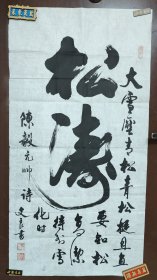 松涛
大雪压青松青松挺且直
要知松
高洁
待到雪
化时
陈毅元帅诗